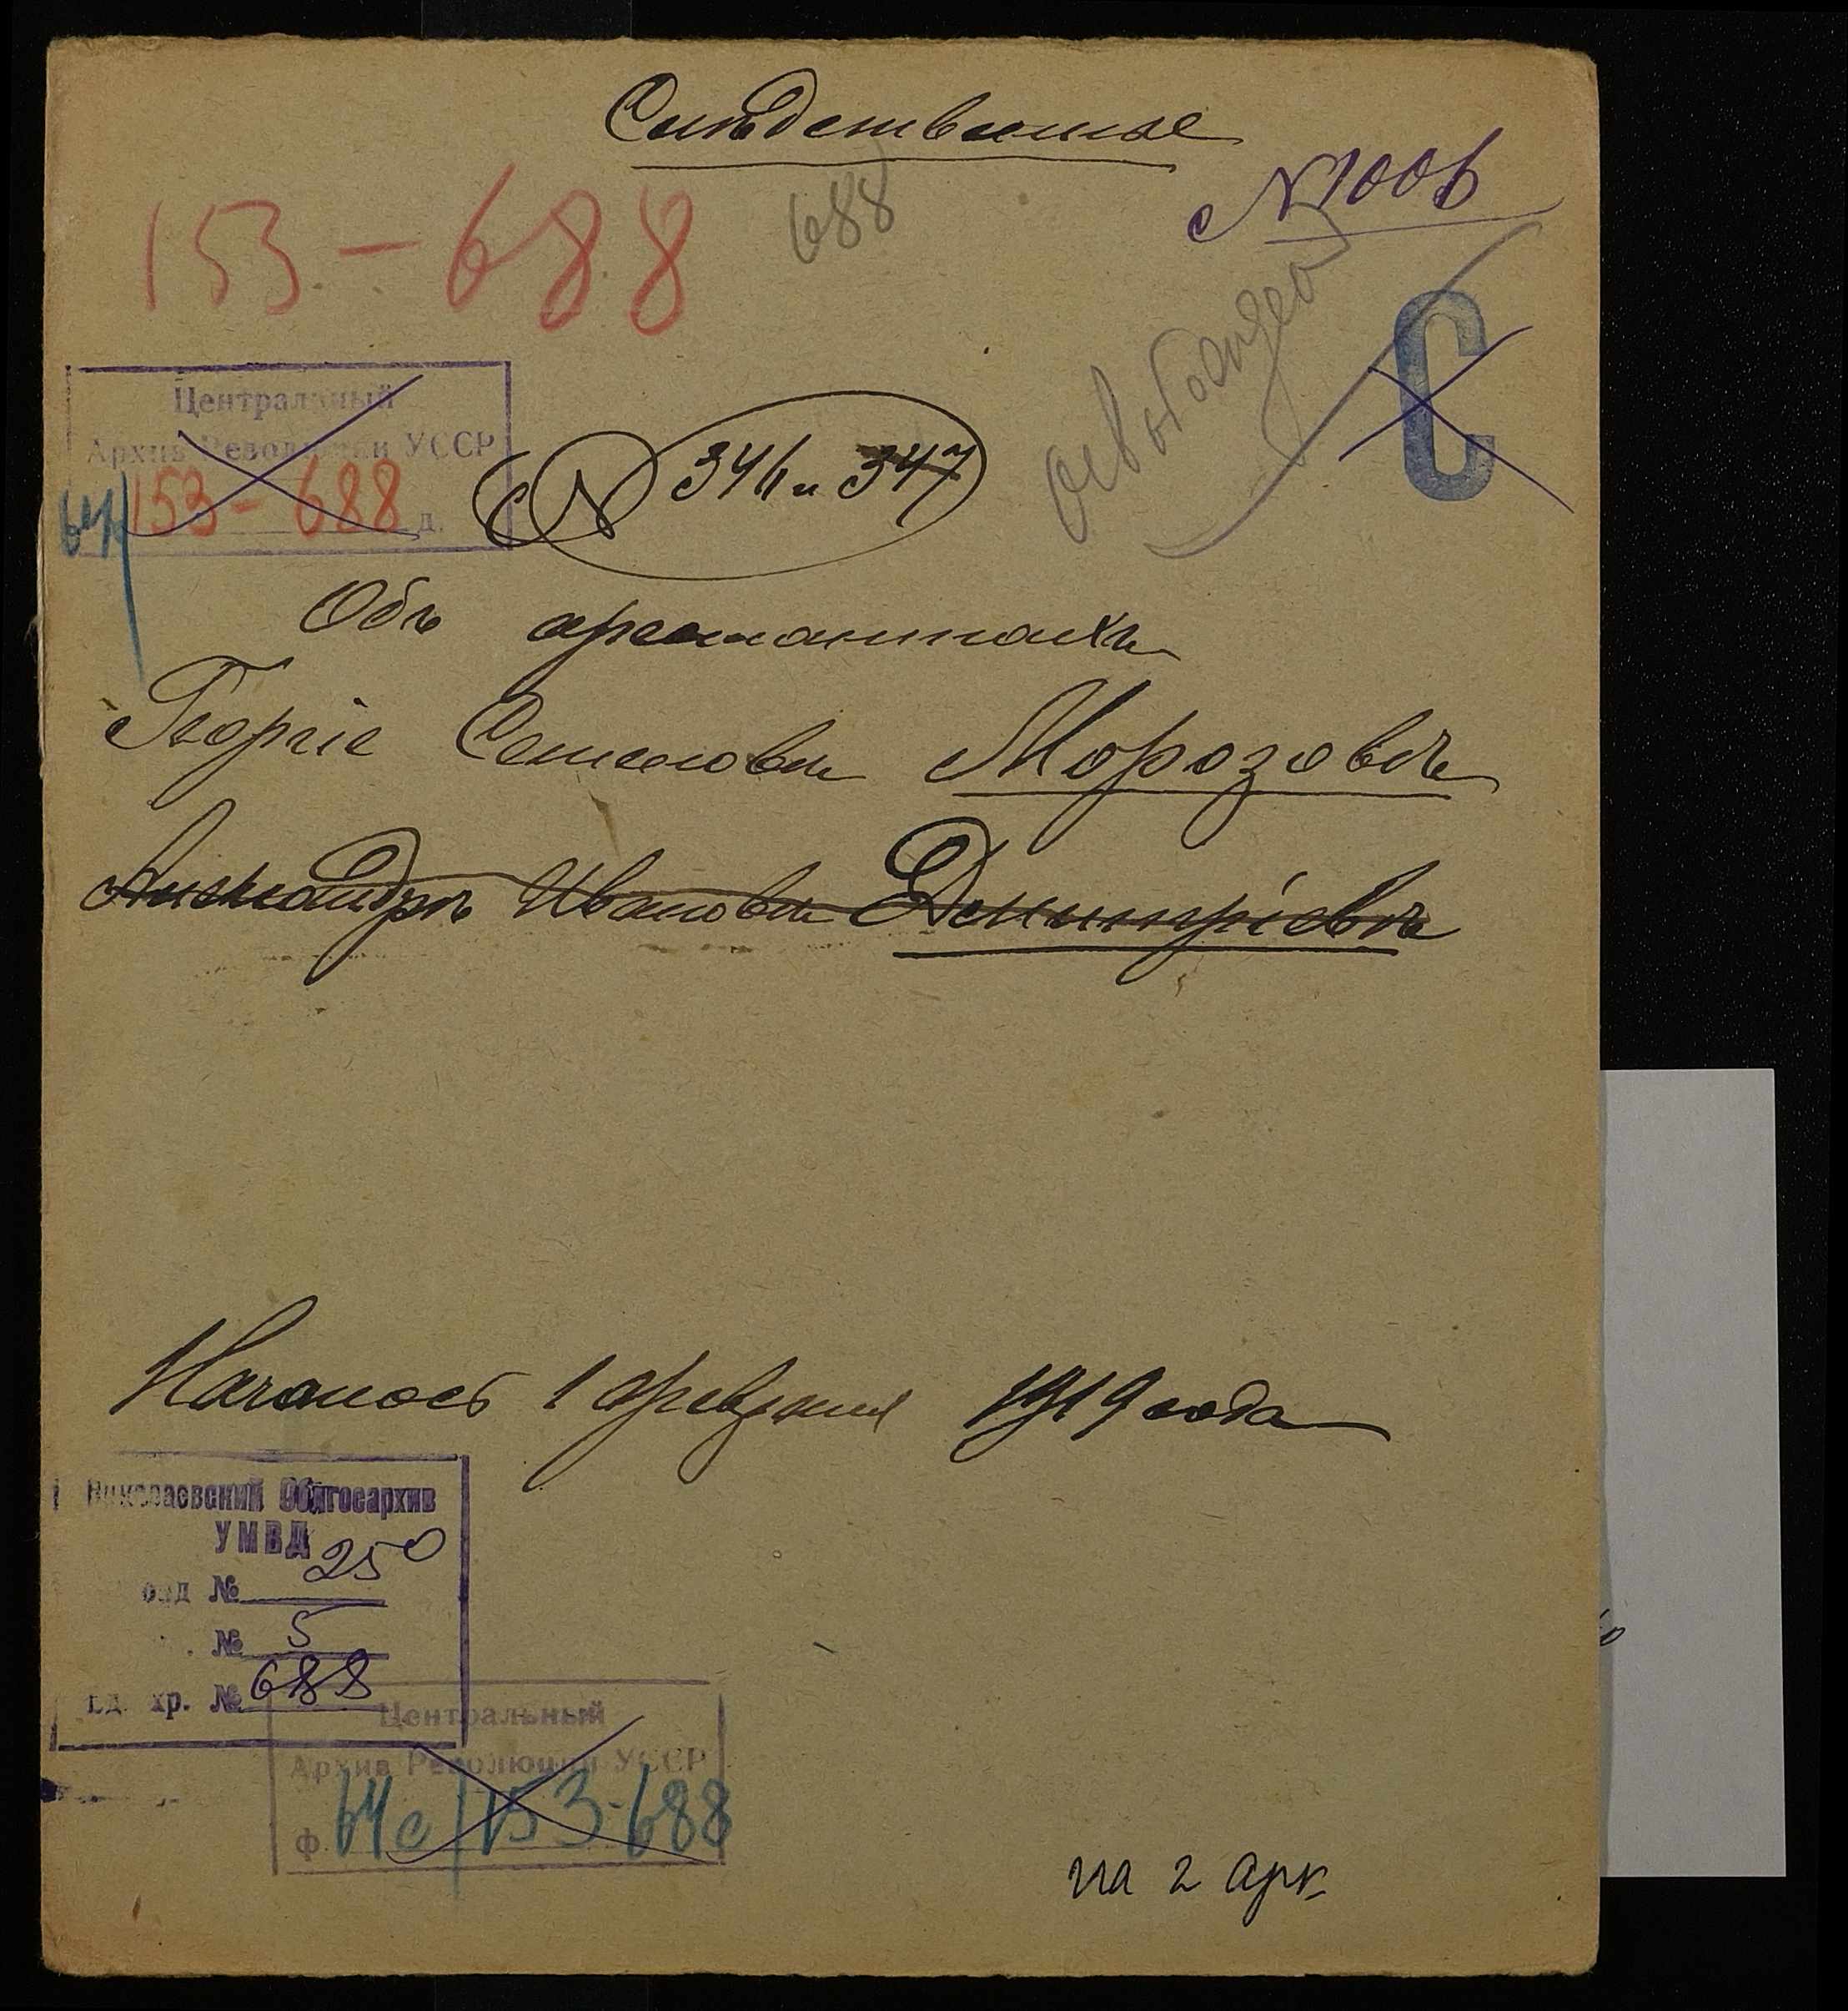 Слѣдственные
№ 1006
153-688
688
освобожден
С
Центральный
Архив Революции УССР
64/153-688 д.
№ 346 и 347
Объ арестантахъ
Георгіе Семеновѣ Морозовѣ
Александрѣ Ивановѣ Дмитріевѣ
Началось 1 февраля 1919 года
Николаевский Облгосархив
УМВД
фонд № 250
№ 5
Ед. хр. № 688
Центральный
Архив Революции УССР
ф. 64с/153-688
на 2 арк.